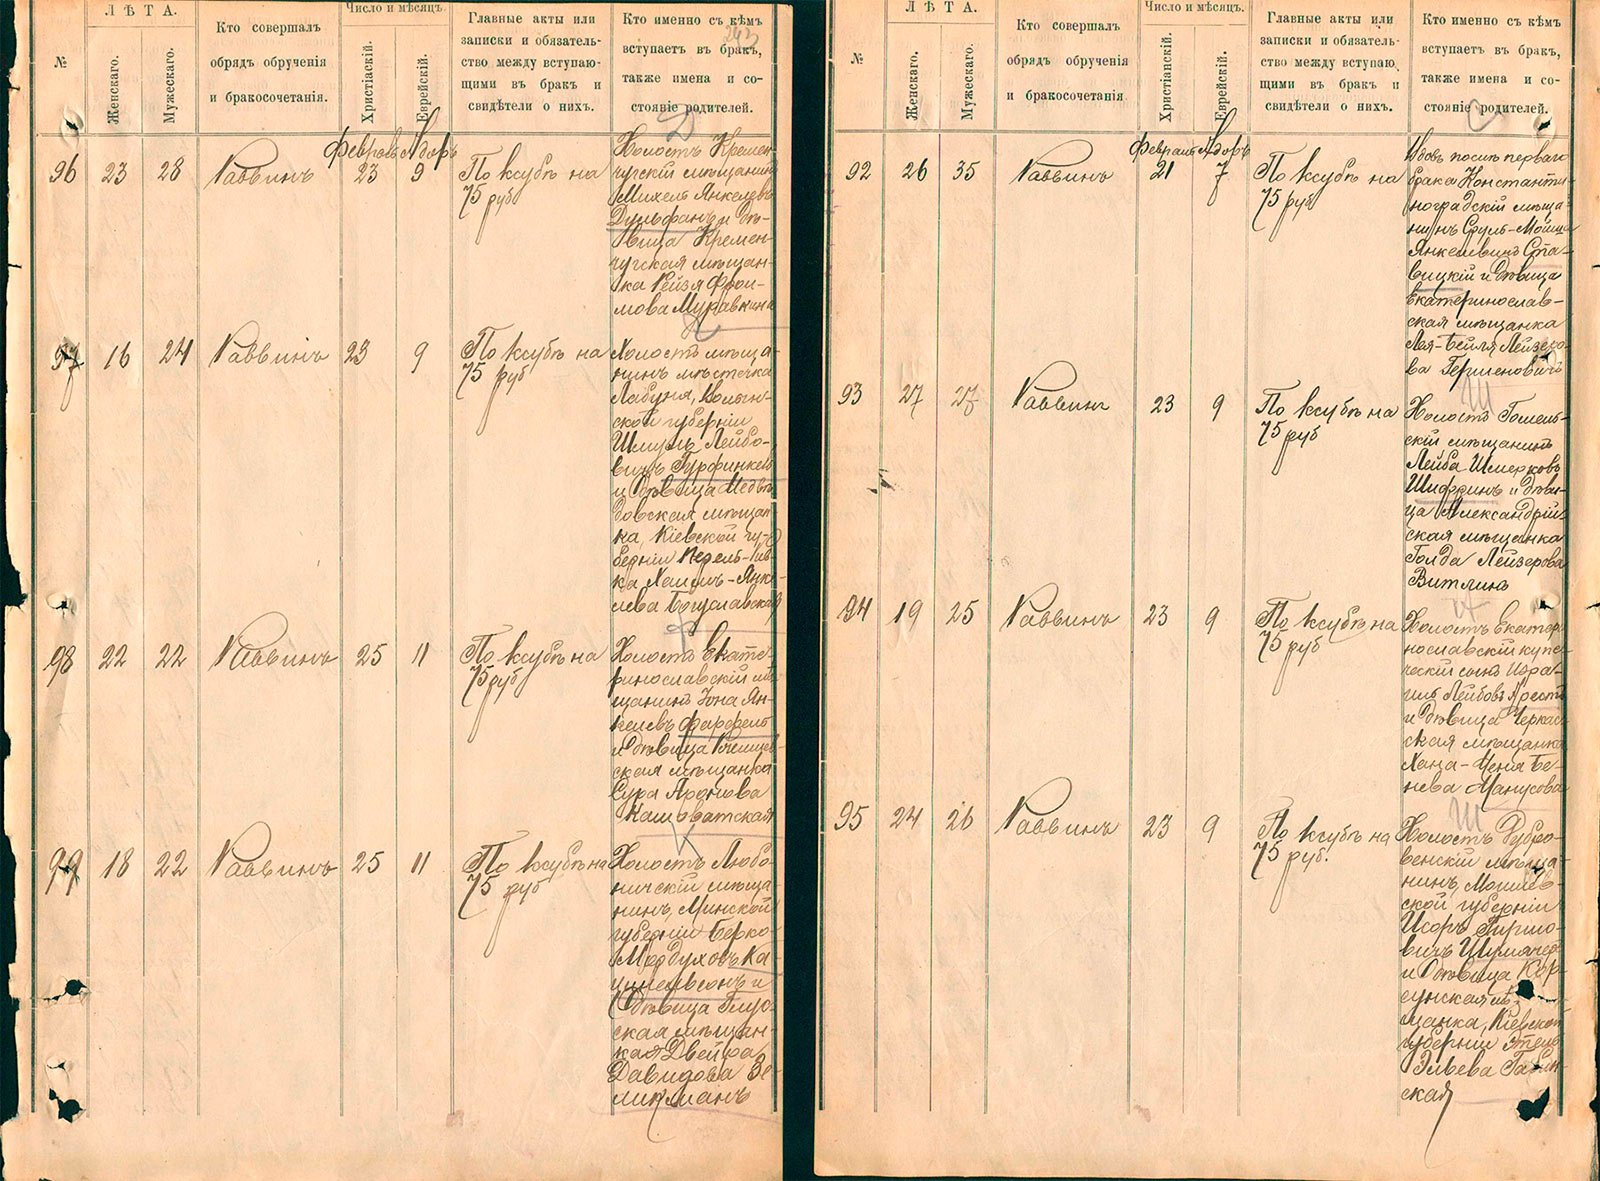 Л Ѣ Т А.
Число и мѣсяцъ.
№
Женскаго.
Мужескаго.
Кто совершалъ
обрядъ обрученія
и бракосочетанія.
Христіаскій.
Еврейскій.
Главные акты или
записки и обязатель-
ство между вступаю-
щими въ бракъ и
свидѣтели о нихъ.
Кто именно съ кѣмъ
вступаетъ въ бракъ,
также имена и со-
стояніе родителей.
Д
96 23 28 Раввинъ
Февраль Адаръ
23 9
По ксубѣ на
75 руб
Холостъ Кремен-
чугскій мѣщанинъ
Михель Янкелевъ
Дульфанъ и дѣ-
вица Кремен-
чугская мѣщан-
ка Рейзя Фрои-
мова Муравкина
97 16 24 Раввинъ 23 9
По ксубѣ на
75 руб
Холостъ мѣща-
нинъ мѣстечка
Лабуня, Волын-
ской губерніи
Шмуль Лейбо-
вичъ Гурфинкель
и дѣвица Медвѣ-
довская мѣщан-
ка, Кіевской гу-
берніи Перель-Рив-
ка Хаимъ-Янке-
лева Богуславская
98 22 22 Раввинъ 25 11
По ксубѣ на
75 руб
Холостъ Екате-
ринославскій мѣ-
щанинъ Іона Ян-
келевъ Фарфель
и дѣвица
ская мѣщанка
Сура Аронова
Кашеватская
К
99 18 22 Раввинъ 25 11
По ксубѣ на
75 руб
Холостъ Любо-
ничскій мѣща-
нинъ, Минской
губерніи Берко
Мордуховъ Ка-
цнельсонъ и
дѣвица Глус-
ская мѣщан-
кая Двейра
Давидова Зе-
лигманъ
Л Ѣ Т А.
Число и мѣсяцъ.
№
Женскаго.
Мужескаго.
Кто совершалъ
обрядъ обрученія
и бракосочетанія
Христіанскій.
Еврейскій.
Главные акты или
записки и обязатель-
ство между вступаю
щими въ бракъ и
свидѣтели о нихъ.
Кто именно съ кѣмъ
вступаетъ въ бракъ,
также имена и со-
стояніе родителей.
С
92 26 35 Раввинъ
Февраль Адаръ
21 7
По ксубѣ на
75 руб
Вдовъ послѣ перваго
брака Константи-
ноградскій мѣща-
нинъ Сруль-Мойша
Янкелевичъ Ста-
вицкій и дѣвица
Екатеринослав-
ская мѣщанка
Лея-Бейля Лейзеро-
ва Герменовичъ
Ш
93 27 27 Раввинъ 23 9
По ксубѣ на
75 руб
Холостъ Гомель-
скій мѣщанинъ
Лейба Шмерковъ
Шифринъ и дѣви-
ца Александрій-
ская мѣщанка
Голда Лейзерова
Витлинъ
94 19 25 Раввинъ 23 9
По ксубѣ на
75 руб
Холостъ Екатери-
нославскій купе-
ческій сынъ Изра-
иль Лейбовъ
и дѣвица Черкас-
ская мѣщанка
Хана-Ценя Бе-
нева Манусова
Ш
95 24 26 Раввинъ 23 9
По ксубѣ на
75 руб.
Холостъ Дубро-
венскій мѣща-
нинъ, Могилев-
ской губерніи
Исоръ Гиршо-
вичъ Шумячер
и дѣвица Кор-
сунская мѣ-
щанка, Кіевской
губерніи Этель
Эльева Габин-
ская